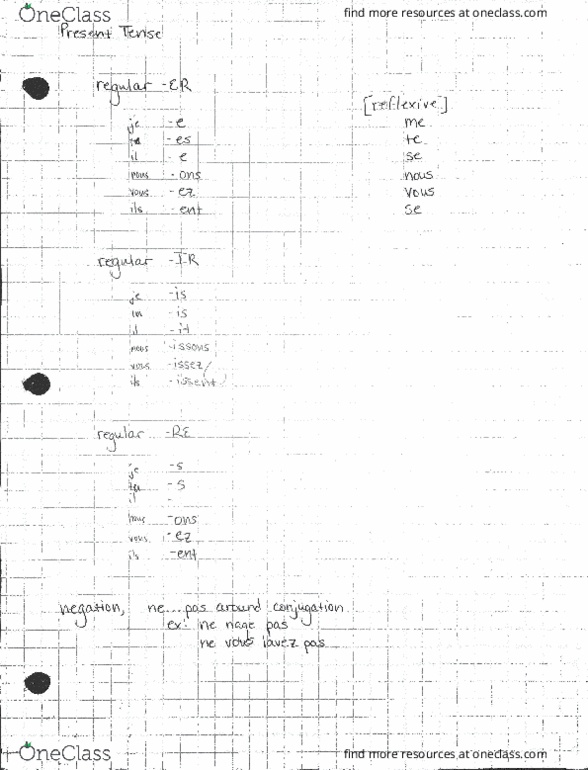 OneClass
find more resources at oneclass.com
Present Tense
regular -ER
[reflexive]
je -e
me
tu -es
te
il e
se
nous -ons
nous
vous -ez
vous
ils -ent
se
regular -IR
je -is
tu -is
il -it
nous -issons
vous -issez
ils -issent
regular -RE
je -s
tu -s
il -
nous -ons
vous -ez
ils -ent
negation, ne...pas around conjugation
ex: ne nage pas
ne vous lavez pas
OneClass
find more resources at oneclass.com